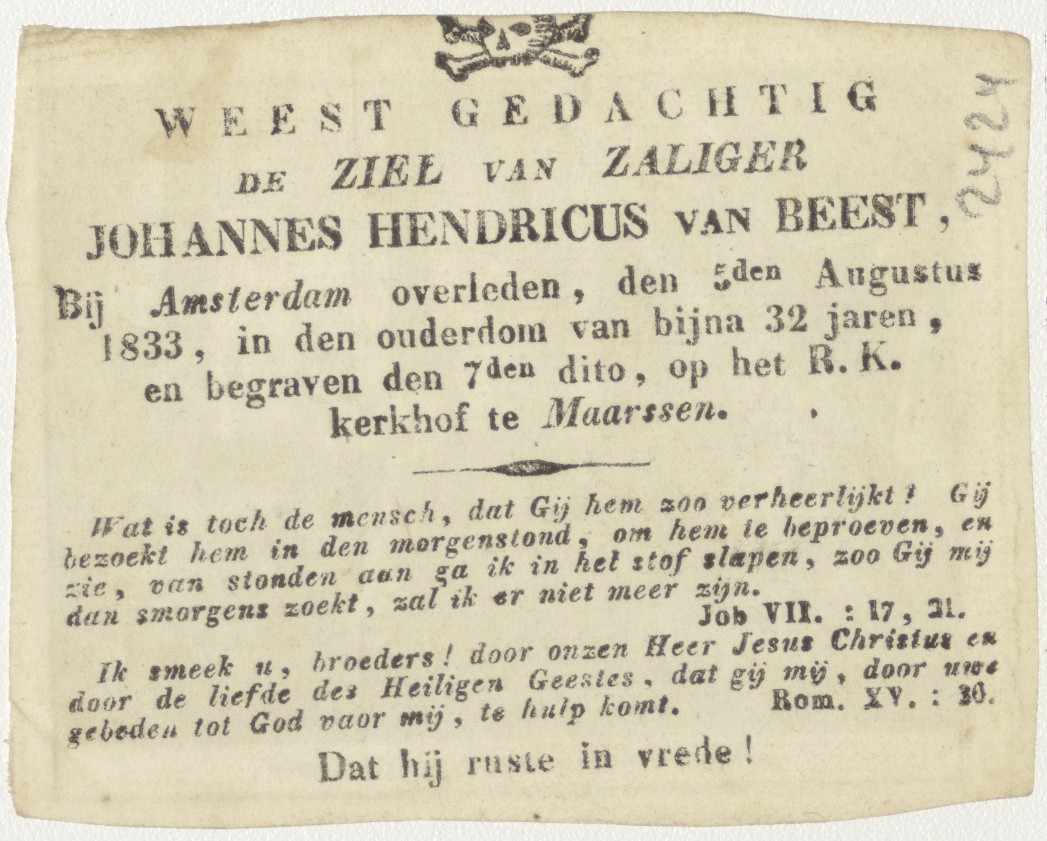 WEEST GEDACHTIG
DE ZIEL VAN ZALIGER
JOHANNES HENDRICUS VAN BEEST,
Bij Amsterdam overleden, den 5den Augustus
1833, in den ouderdom van bijna 32 jaren,
en begraven den 7den dito, op het R. K.
kerkhof te Maarssen.
Wat is toch de mensch, dat Gij hem zoo verheerlijkt? Gij
bezoekt hem in den morgenstond, om hem te beproeven, en
zie, van stonden aan ga ik in het stof slapen, zoo Gij mij
dan smorgens zoekt, zal ik er niet meer zijn.
Job VII. : 17, 21.
Ik smeek u, broeders! door onzen Heer Jesus Christus en
door de liefde des Heiligen Geestes, dat gij mij, door uwe
gebeden tot God vaor mij, te hulp komt. Rom. XV. : 30.
Dat hij ruste in vrede!
2424